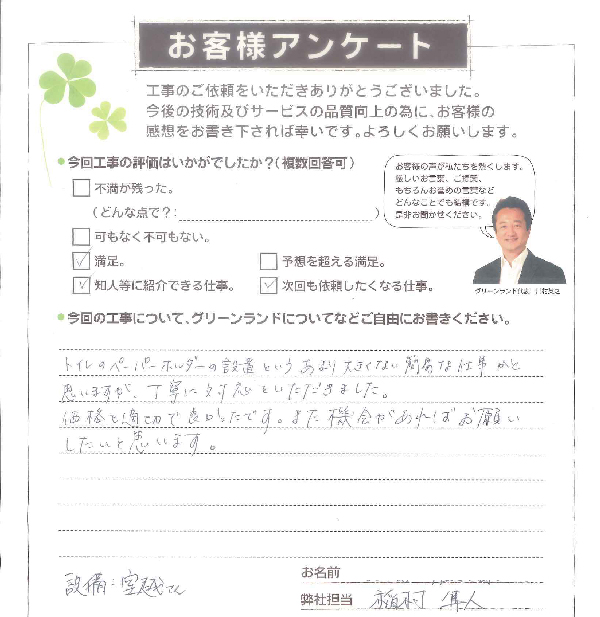 お客様アンケート
工事のご依頼をいただきありがとうございました。
今後の技術及びサービスの品質向上の為に、お客様の
感想をお書き下されば幸いです。よろしくお願いします。
●今回工事の評価はいかがでしたか？（複数回答可）
不満が残った。
（どんな点で？：　　　　）
可もなく不可もない。
満足。
予想を超える満足。
知人等に紹介できる仕事。
次回も依頼したくなる仕事。
お客様の声が私たちを熱くします。
厳しいお言葉、ご提案、
もちろんお誉めの言葉など
どんなことでも結構です。
是非お聞かせください。
グリーンランド代表
●今回の工事について、グリーンランドについてなどご自由にお書きください。
トイレのペーパーホルダーの設置というあまり大きくない簡易な仕事かと
思いますが、丁寧に対応をいただきました。
価格も適切で良かったです。また機会があればお願い
したいと思います。
お名前
設備：室越さん
弊社担当 稲村 隼人